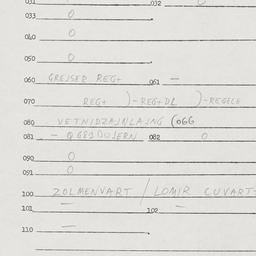 031 032 0
033 0
040 0
050 0
060 GREJSER REG+ 061 —
070 REG+ )-REG+DL )-REGELE
080 VETNIDZAJNLAJNG (066
081 — 082 0
090 0
091 0
100 ZOLMENVART / LOMIR CUVART-
101 — 102 —
110 —